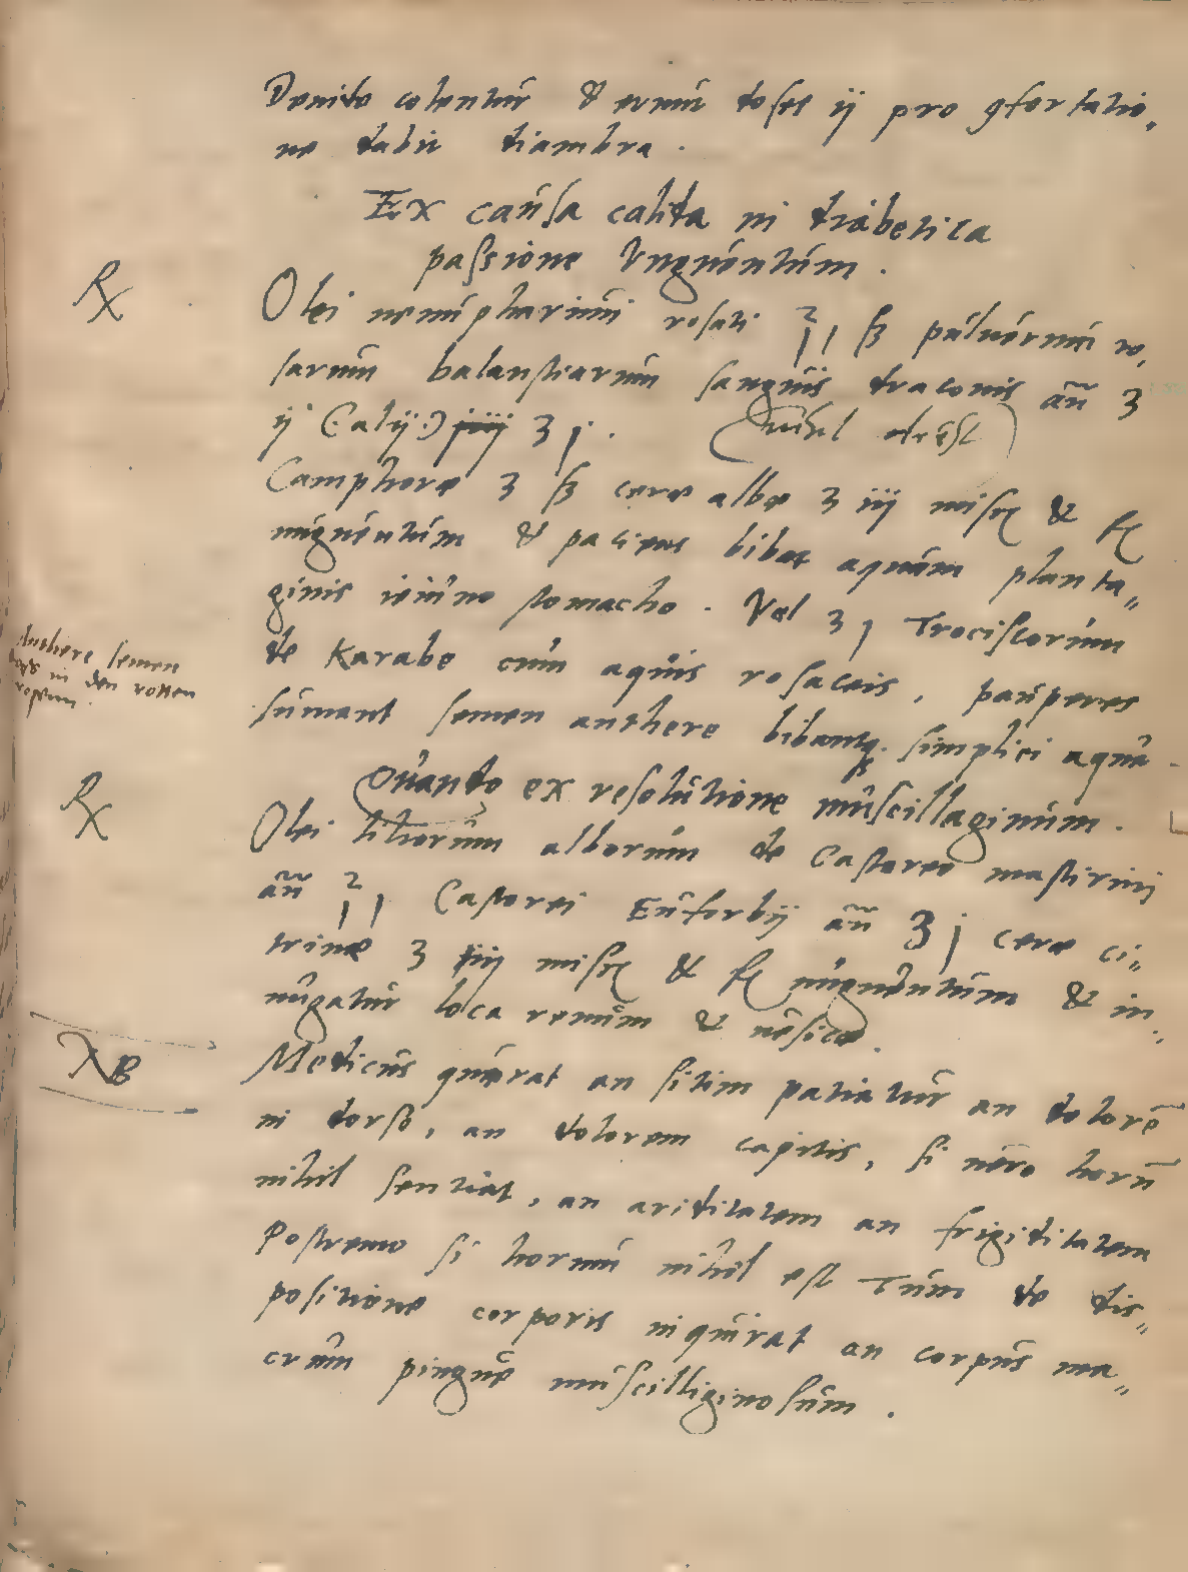 Denito colentur & erunt doses ij pro gfortatio„
ne dabit diambra .
Ex causa calida in diabetica
passione Unguentum .
Rx
Olei nenupharini rosati ℥j ß puluerum ro„
sarum balaustiarum sanguis draconis añ ʒ
ij (:alij:) iiij ʒ j . (nihil obest)
Camphoræ ʒ ß ceræ albæ ʒ iij misc & f
unguentum & patiens bibat aquam planta„
ginis ieiuno stomacho . Vel ʒ j Trociscorum
Anthere semen
in den rotten
rosenn .
de Karabe cum aquis rosaceis , pauperes
sumant semen anthere bibantq. simplici aqua .
Quando ex resolutione muscillaginum .
Rx
Olei liliorum alborum de Castoreo mastirini
añ ℥j Castorei Euforbij añ ʒ j ceræ ci„
trinæ ʒ iij misc & f unguentum & in„
ungatur loca renum & uesicæ .
NB
Medicus quærat an sitim patiatur an dolorē
in dorso , an dolorem capitis , si uero horū
nihil sentiat , an ariditatem an frigiditatem
Postremo si horum nihil est Tum de dis„
positione corporis inquirat an corpus ma„
crum pingue muscilliginosum .